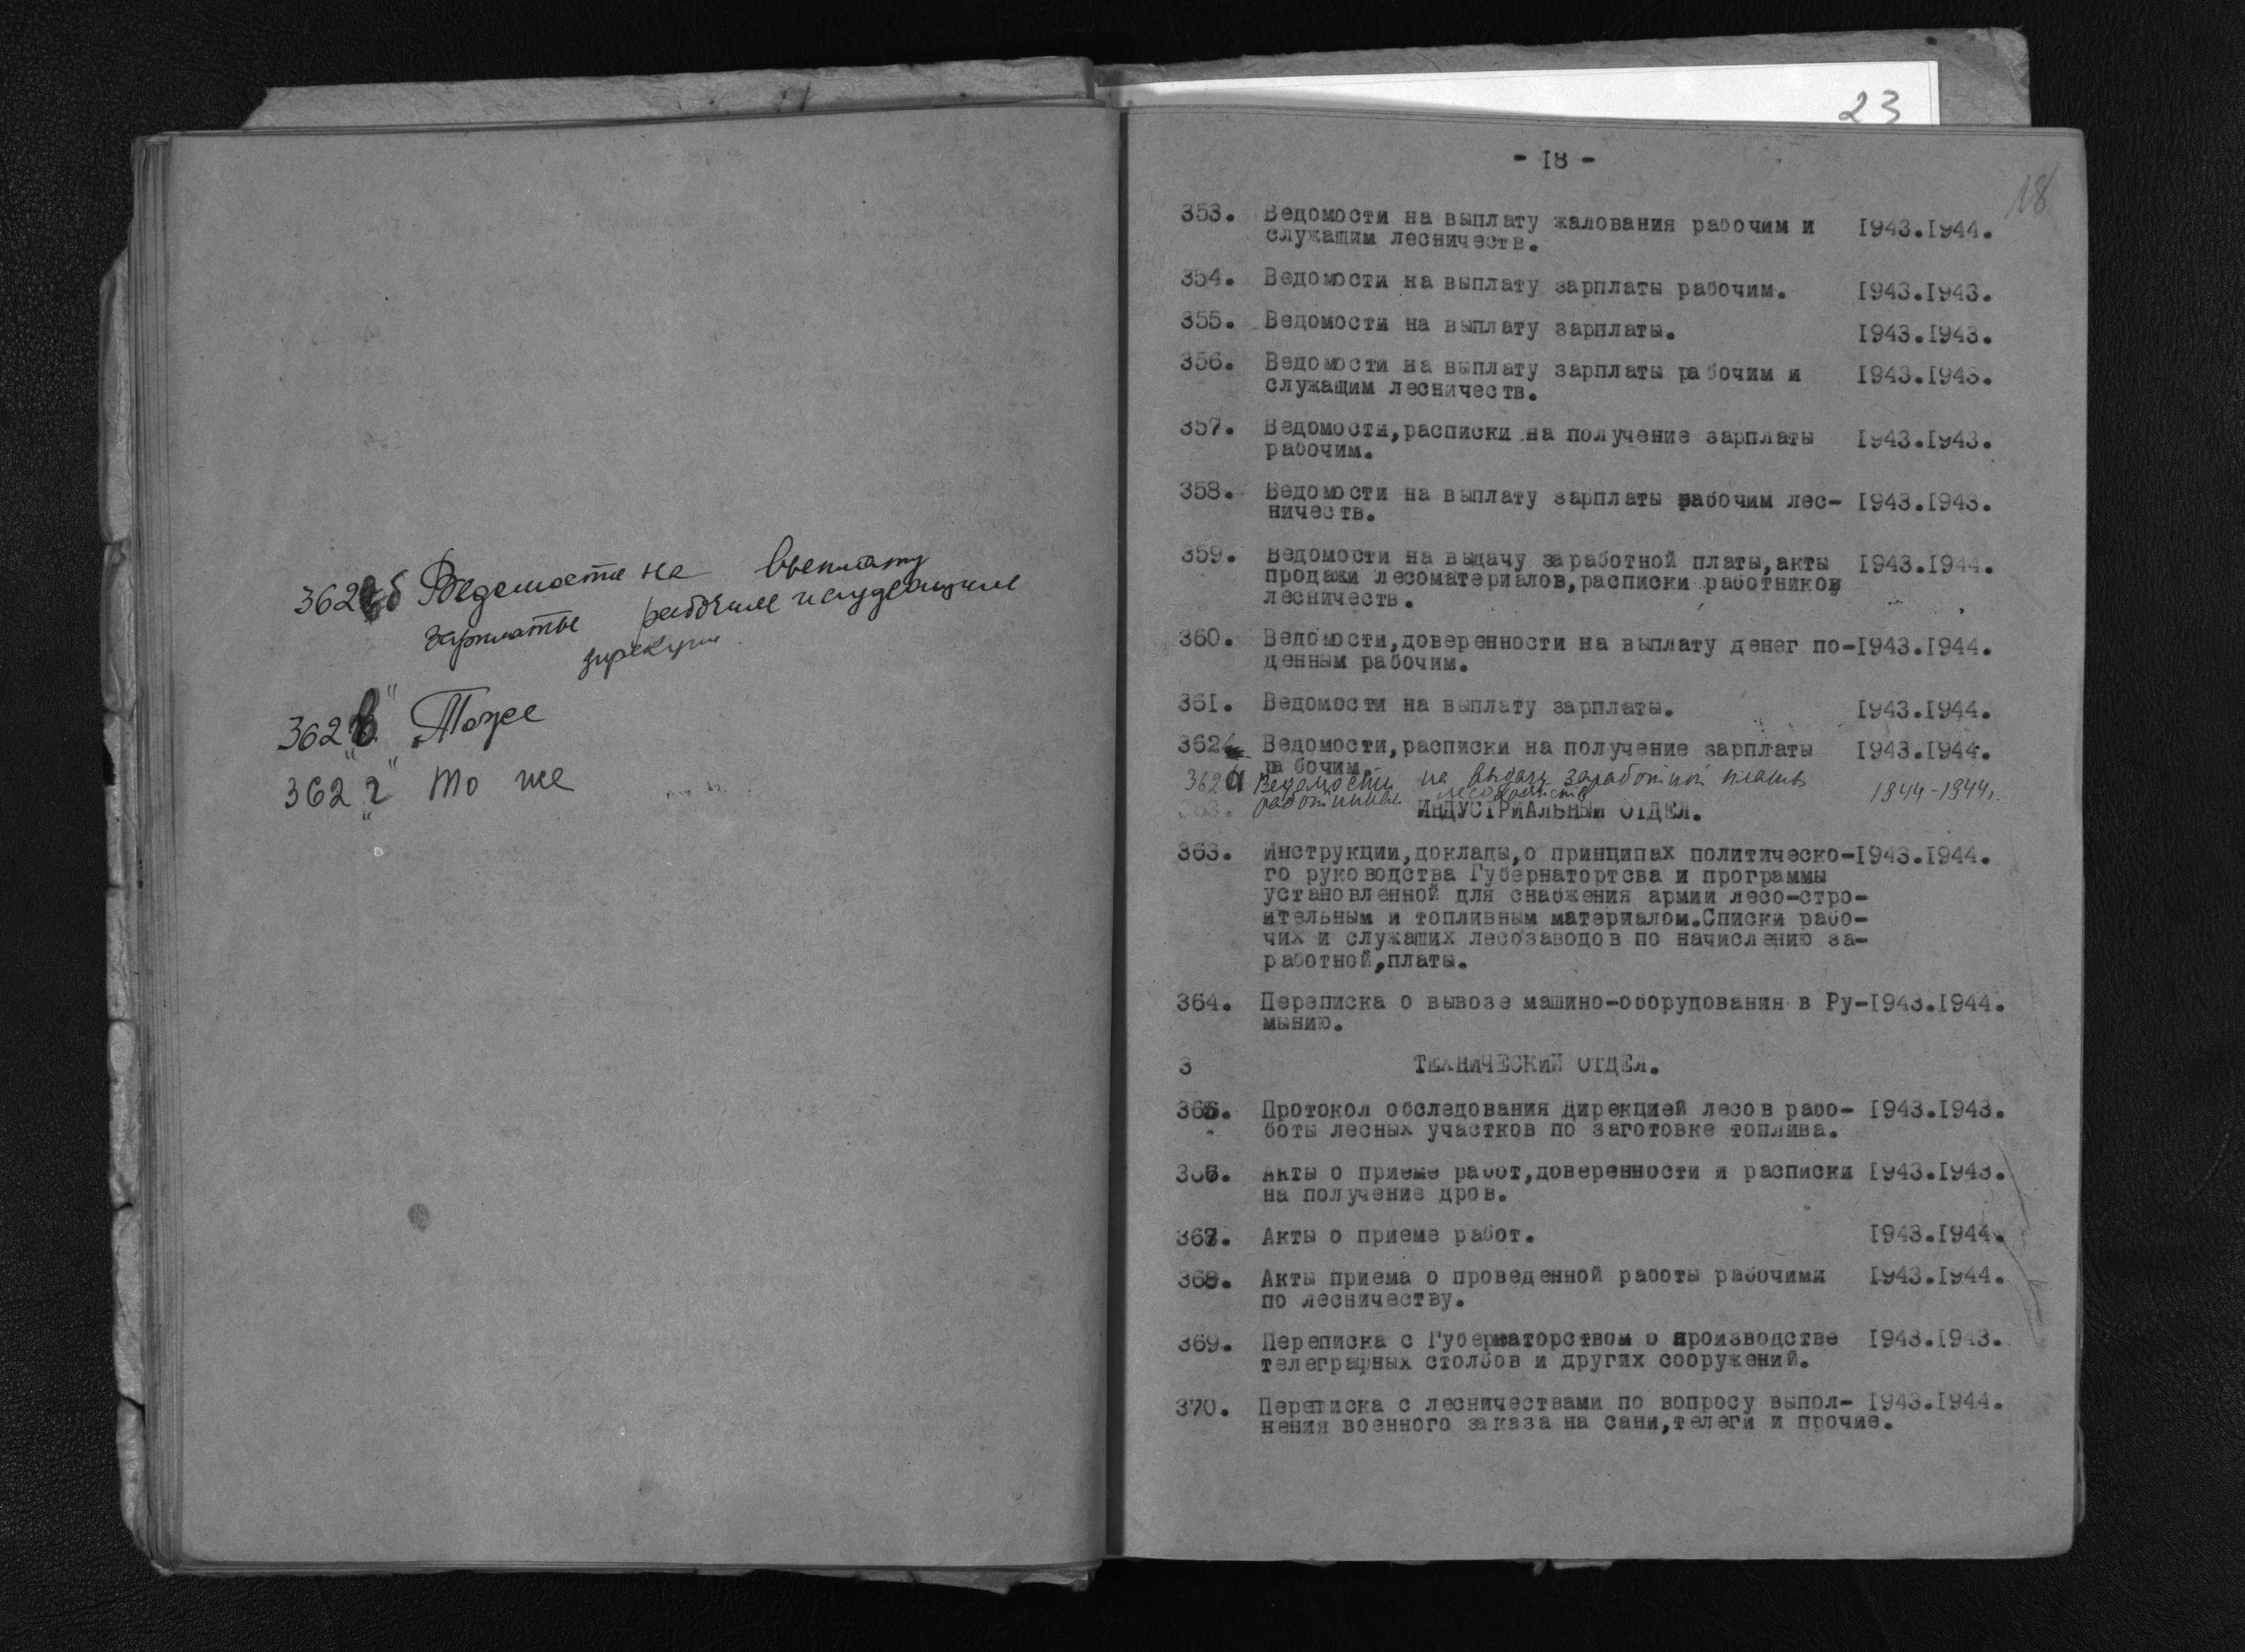 362 б Ведомости на выплату
зарплаты рабочим и служащим
дирекции.
362 "в" Тоже
362 "г" то же
23
- I8 -
18
353. Ведомости на выплату жалования рабочим и I943.I944.
служащим лесничеств.
354. Ведомости на выплату зарплаты рабочим. I943.I943.
355. Ведомости на выплату зарплаты. I943.I943.
356. Ведомости на выплату зарплаты рабочим и I943.I943.
служащим лесничеств.
357. Ведомости,расписки на получение зарплаты I943.I943.
рабочим.
358. Ведомости на выплату зарплаты рабочим лес- I943.I943.
ничеств.
359. Ведомости на выдачу заработной платы,акты I943.I944.
продажи лесоматериалов,расписки работников
лесничеств.
360. Ведомости,доверенности на выплату денег по-I943.I944.
денным рабочим.
36I. Ведомости на выплату зарплаты. I943.I944.
362. Ведомости,расписки на получение зарплаты I943.I944.
рабочим.
362 а Ведомости на выдачу заработной платы 1944-1944г.
работникам
363. ИНДУСТРИАЛЬНЫЙ ОТДЕЛ.
363. Инструкции,доклады,о принципах политическо-I943.I944.
го руководства Губернатортсва и программы
установленной для снабжения армии лесо-стро-
ительным и топливным материалом.Списки рабо-
чих и служащих лесозаводов по начислению за-
работной,платы.
364. Переписка о вывозе машино-оборудования в Ру-I943.I944.
мынию.
3 ТЕХНИЧЕСКИЙ ОТДЕЛ.
365. Протокол обследования Дирекцией лесов рабо- I943.I943.
боты лесных участков по заготовке топлива.
366. Акты о приеме работ,доверенности и расписки I943.I943.
на получение дров.
367. Акты о приеме работ. I943.I944.
368. Акты приема о проведенной работы рабочими I943.I944.
по лесничеству.
369. Переписка с Губернаторством о производстве I943.I943.
телеграфных столбов и других сооружений.
370. Переписка с лесничествами по вопросу выпол- I943.I944.
нения военного заказа на сани,телеги и прочие.